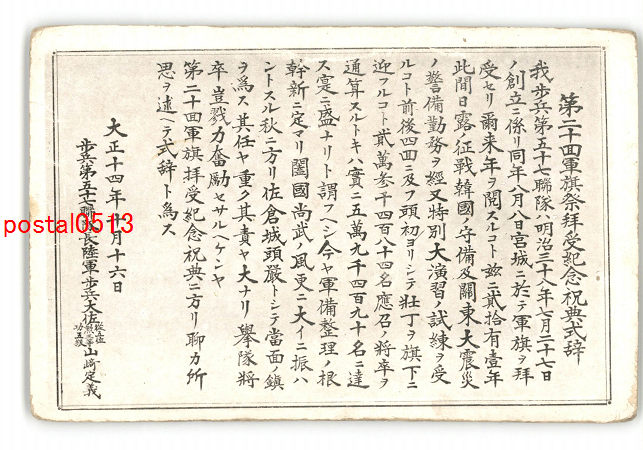 第二十回軍旗祭拜受紀念祝典式辞
我歩兵第五十七聯隊ハ明治三十八年七月二十七日
ノ創立ニ係リ同年八月八日宮城ニ於テ軍旗ヲ拜
受セリ爾来年ヲ閲スルコト玆ニ貳拾有壹年
此間日露征戰韓國ノ守備及關東大震災
ノ警備勤務ヲ経又特別大演習ノ試練ヲ受
ルコト前後四回ニ及フ頭初ヨリシテ壮丁ヲ旗下ニ
迎フルコト貳萬参千四百八十四名應召ノ将卒ヲ
通算スルトキハ實ニ五萬九千四百九十名ニ達
ス寔ニ盛ナリト謂フヘシ今ヤ軍備整理ノ根
幹新ニ定マリ闔國尚武ノ風更ニ大イニ振ハ
ントスル秋ニ方リ佐倉城頭嚴トシテ當面ノ鎮
ヲ爲ス其任ヤ重ク其責ヤ大ナリ擧隊将
卒豈戮力奮励セサルヘケンヤ
第二十回軍旗拜受紀念祝典ニ方リ聊カ所
思ヲ述ヘテ式辞ト爲ス
大正十四年十月十六日
歩兵第五十七聯隊長陸軍歩兵大佐 山崎定義
postal0513